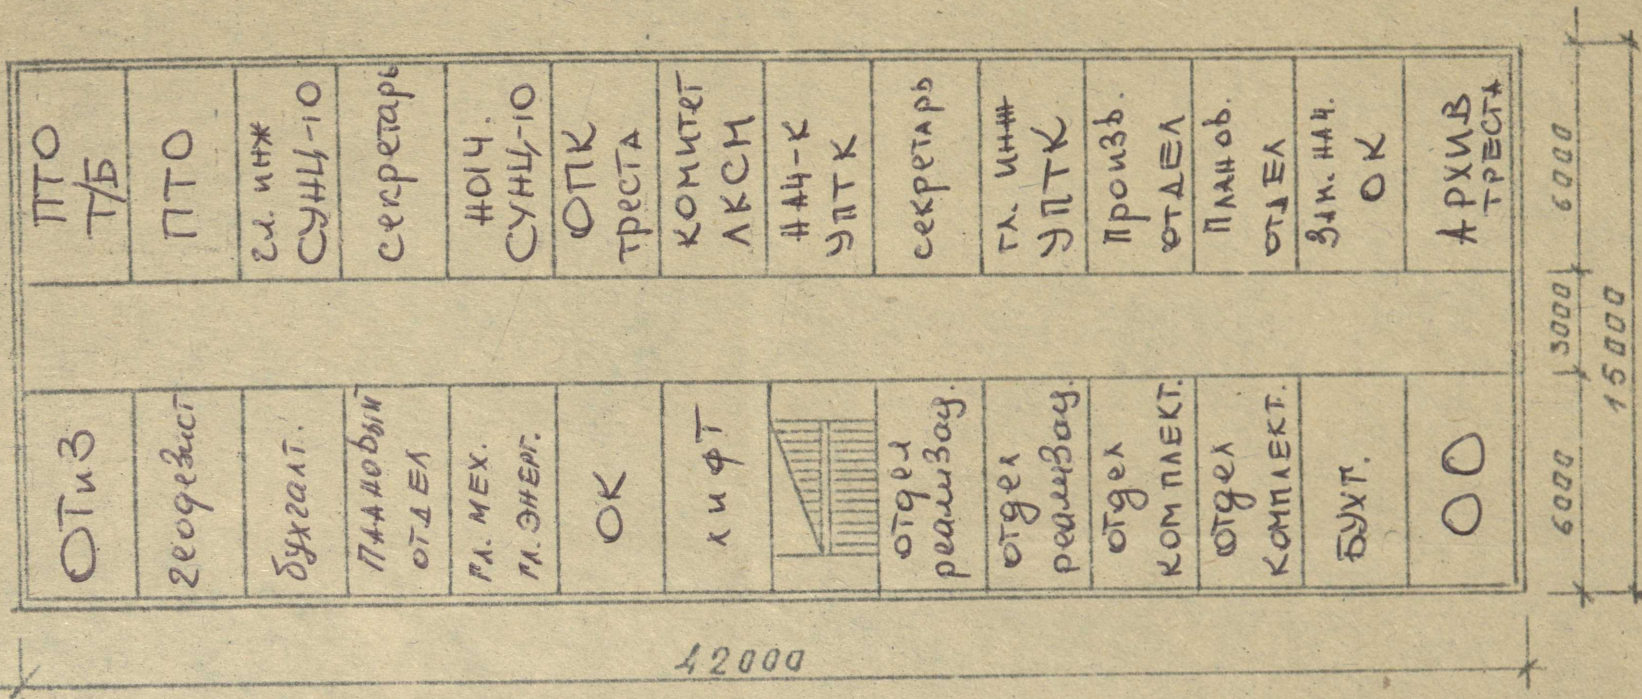 ПТО
Т/Б
ПТО
гл. инж
СУНЦ-10
секретарь
НОЧ.
СУНЦ-10
ОПК
треста
комитет
ЛКСМ
НАЧ-К
УПТК
секретарь
гл. инж
УПТК
Произв.
отдел
Планов.
отдел
Зам. нач.
ОК
АРХИВ
ТРЕСТА
ОТиЗ
геодезист
бухгалт.
Плановый
отдел
гл. мех.
гл. энерг.
ОК
лифт
отдел
реализац.
отдел
реализац.
отдел
комплект.
отдел
комплект.
Бухг.
ОО
6000
3000
6000
15000
42000